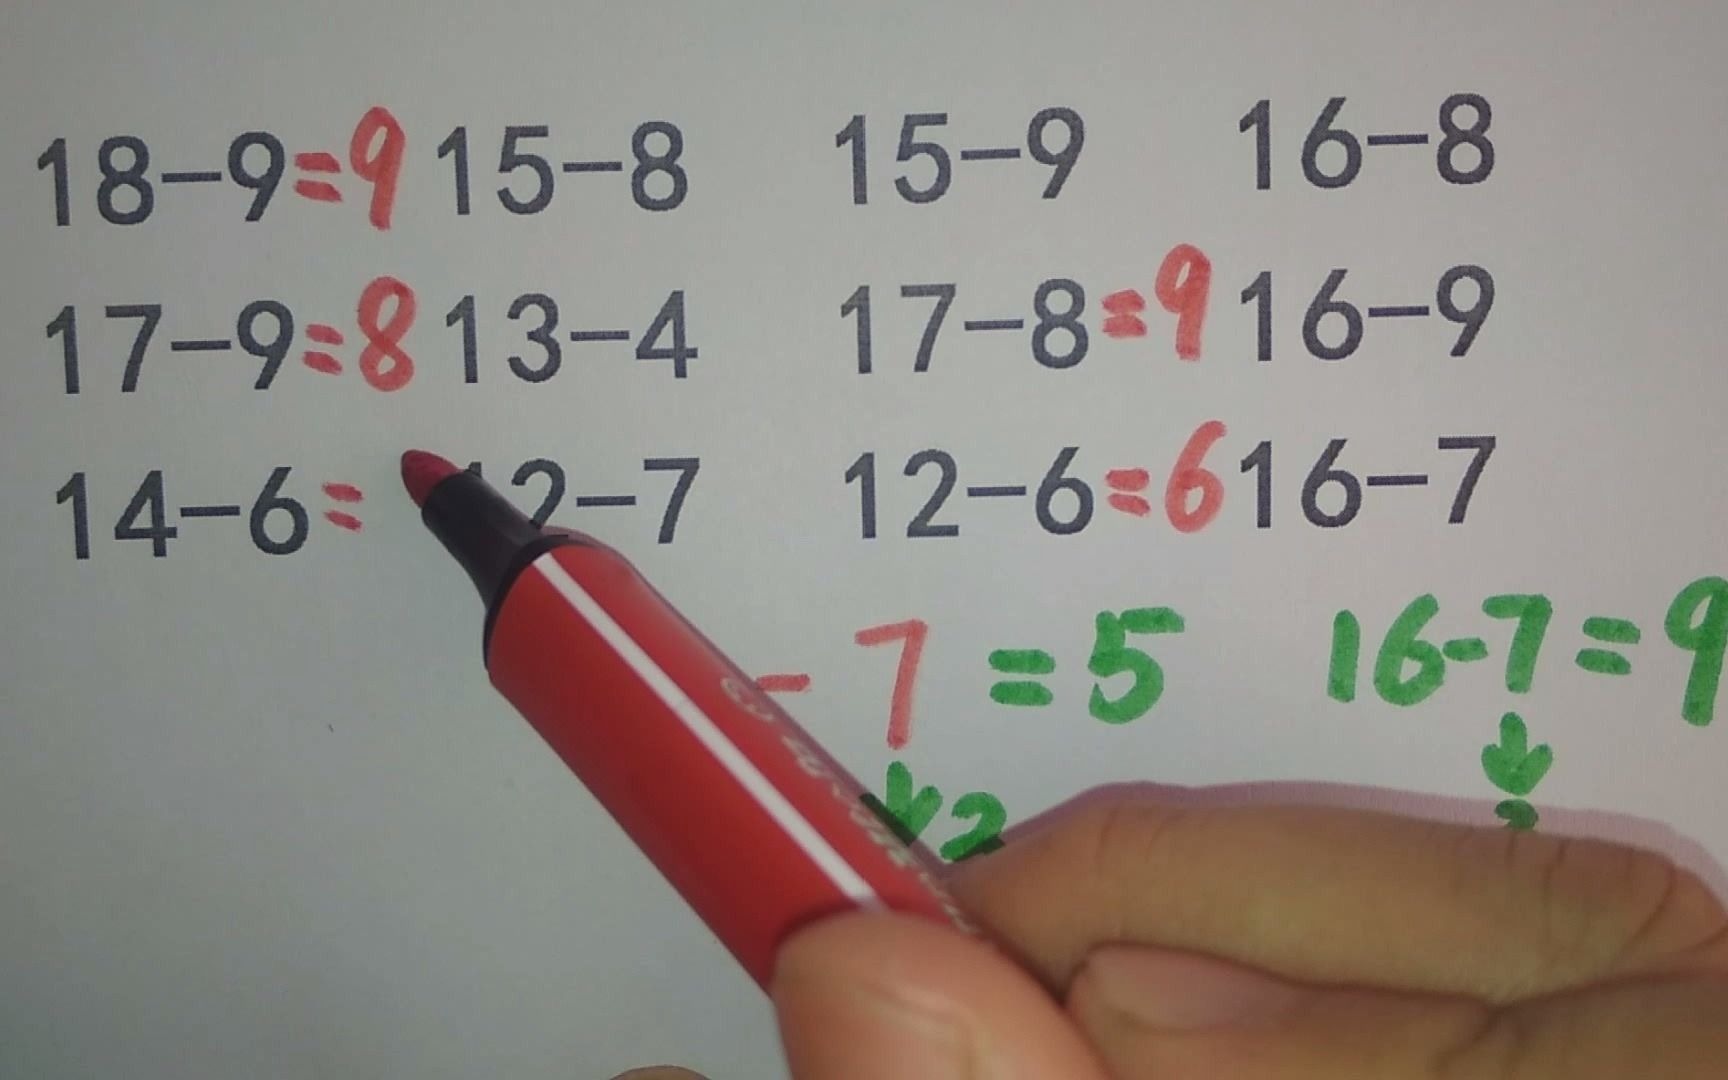 18-9=9 15-8 15-9 16-8
17-9=8 13-4 17-8=9 16-9
14-6= 12-7 12-6=6 16-7
- 7 = 5 16-7=9
2